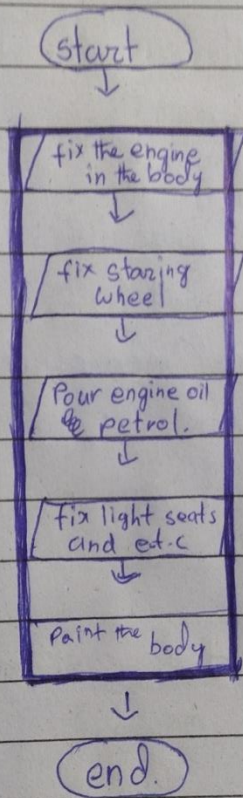 start
fix the engine
in the body
fix staring
wheel
Pour engine oil
& petrol.
fix light seats
and ect.c
Paint the body
end.